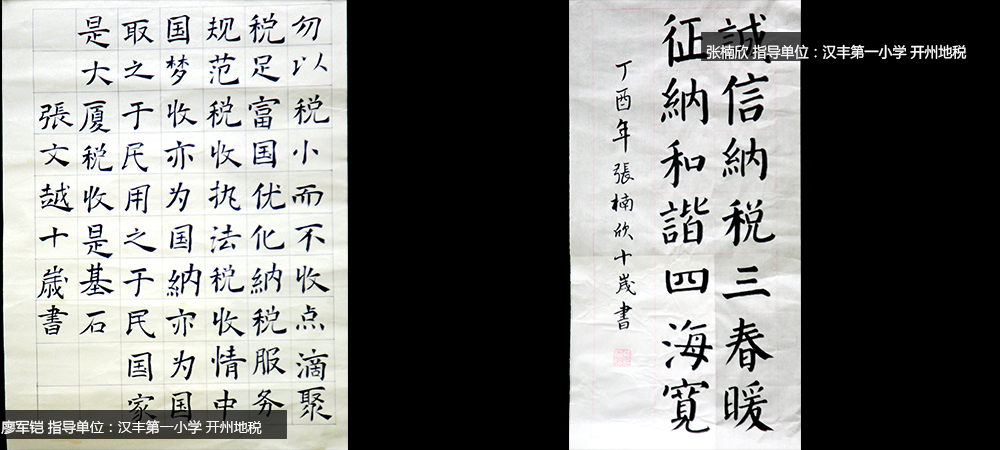 勿以税小而不收点滴聚
税足富国优化納税服务
规范税收执法税收情中
国梦收亦为国納亦为国
取之于民用之于民国家
是大厦税收是基石
張文越十歲書
廖军铠 指导单位：汉丰第一小学 开州地税
張楠欣 指导单位：汉丰第一小学 开州地税
誠信納税三春暖
征納和諧四海寬
丁酉年張楠欣十歲書